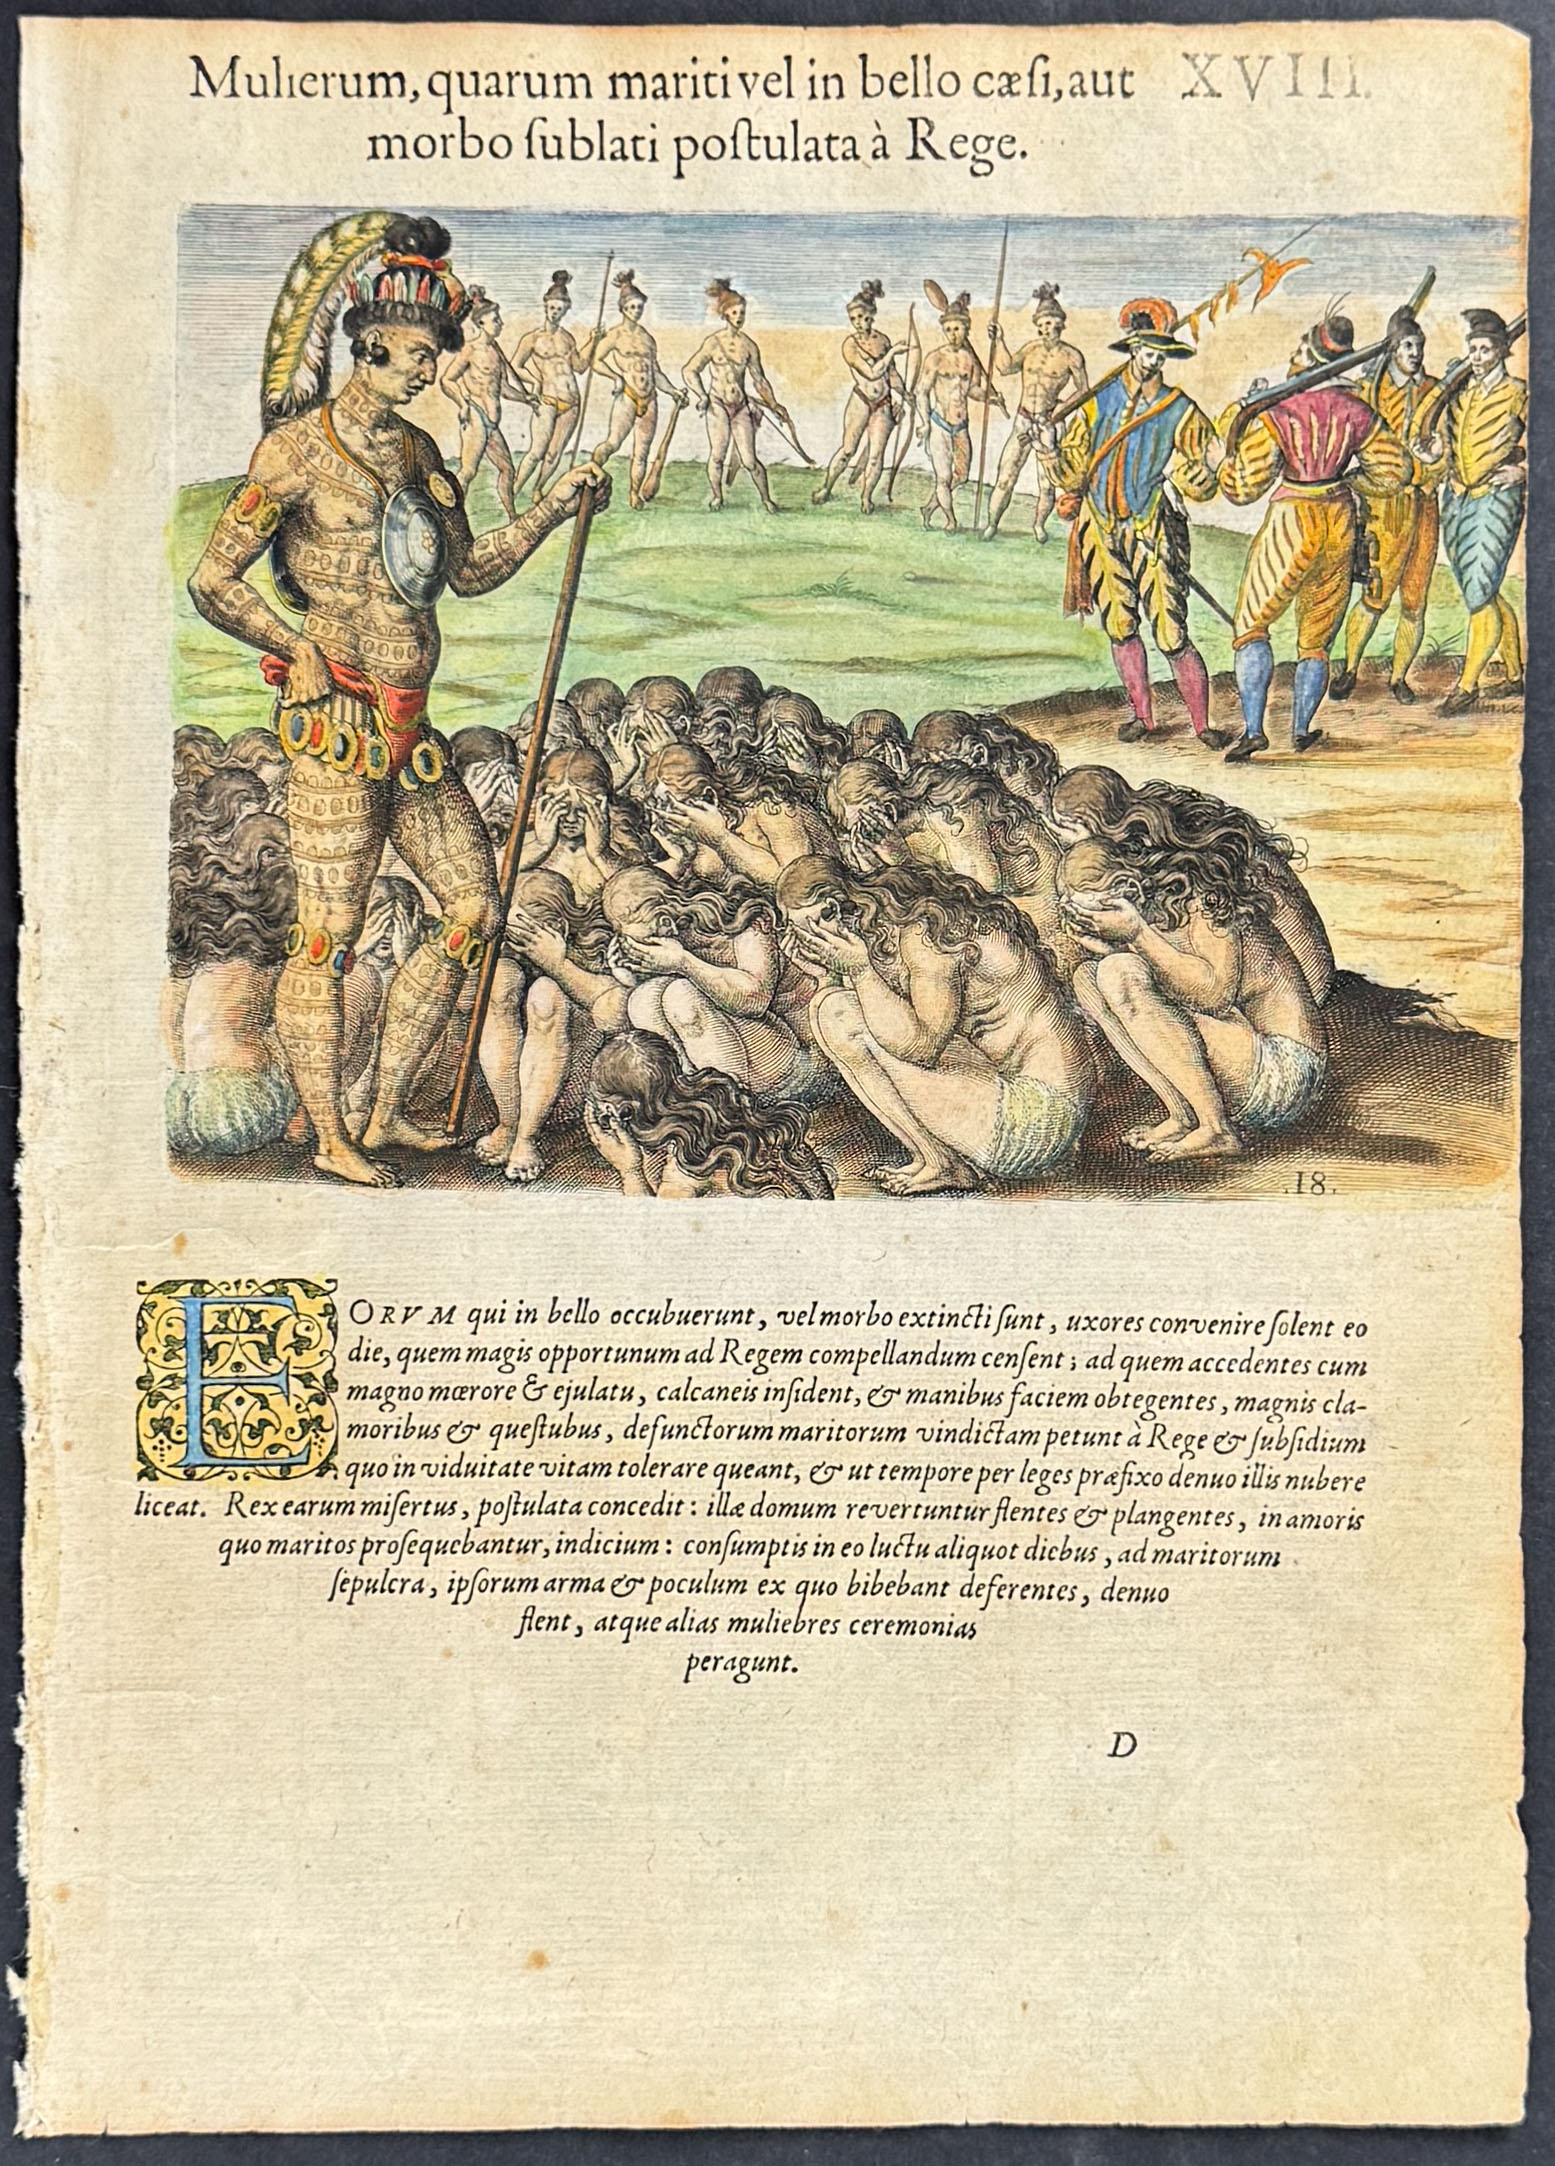 Mulierum, quarum mariti vel in bello cæſi, aut XVIII.
morbo ſublati poſtulata à Rege.
.18.
EORVM qui in bello occubuerunt, vel morbo extincti ſunt, uxores convenire ſolent eo
die, quem magis opportunum ad Regem compellandum cenſent; ad quem accedentes cum
magno mœrore & ejulatu, calcaneis inſident, & manibus faciem obtegentes, magnis cla-
moribus & queſtubus, defunctorum maritorum vindictam petunt à Rege & ſubſidium
quo in viduitate vitam tolerare queant, & ut tempore per leges præfixo denuo illis nubere
liceat. Rex earum miſertus, poſtulata concedit: illæ domum revertuntur flentes & plangentes, in amoris
quo maritos proſequebantur, indicium: conſumptis in eo luctu aliquot diebus, ad maritorum
ſepulcra, ipſorum arma & poculum ex quo bibebant deferentes, denuo
flent, atque alias muliebres ceremonias
peragunt.
D